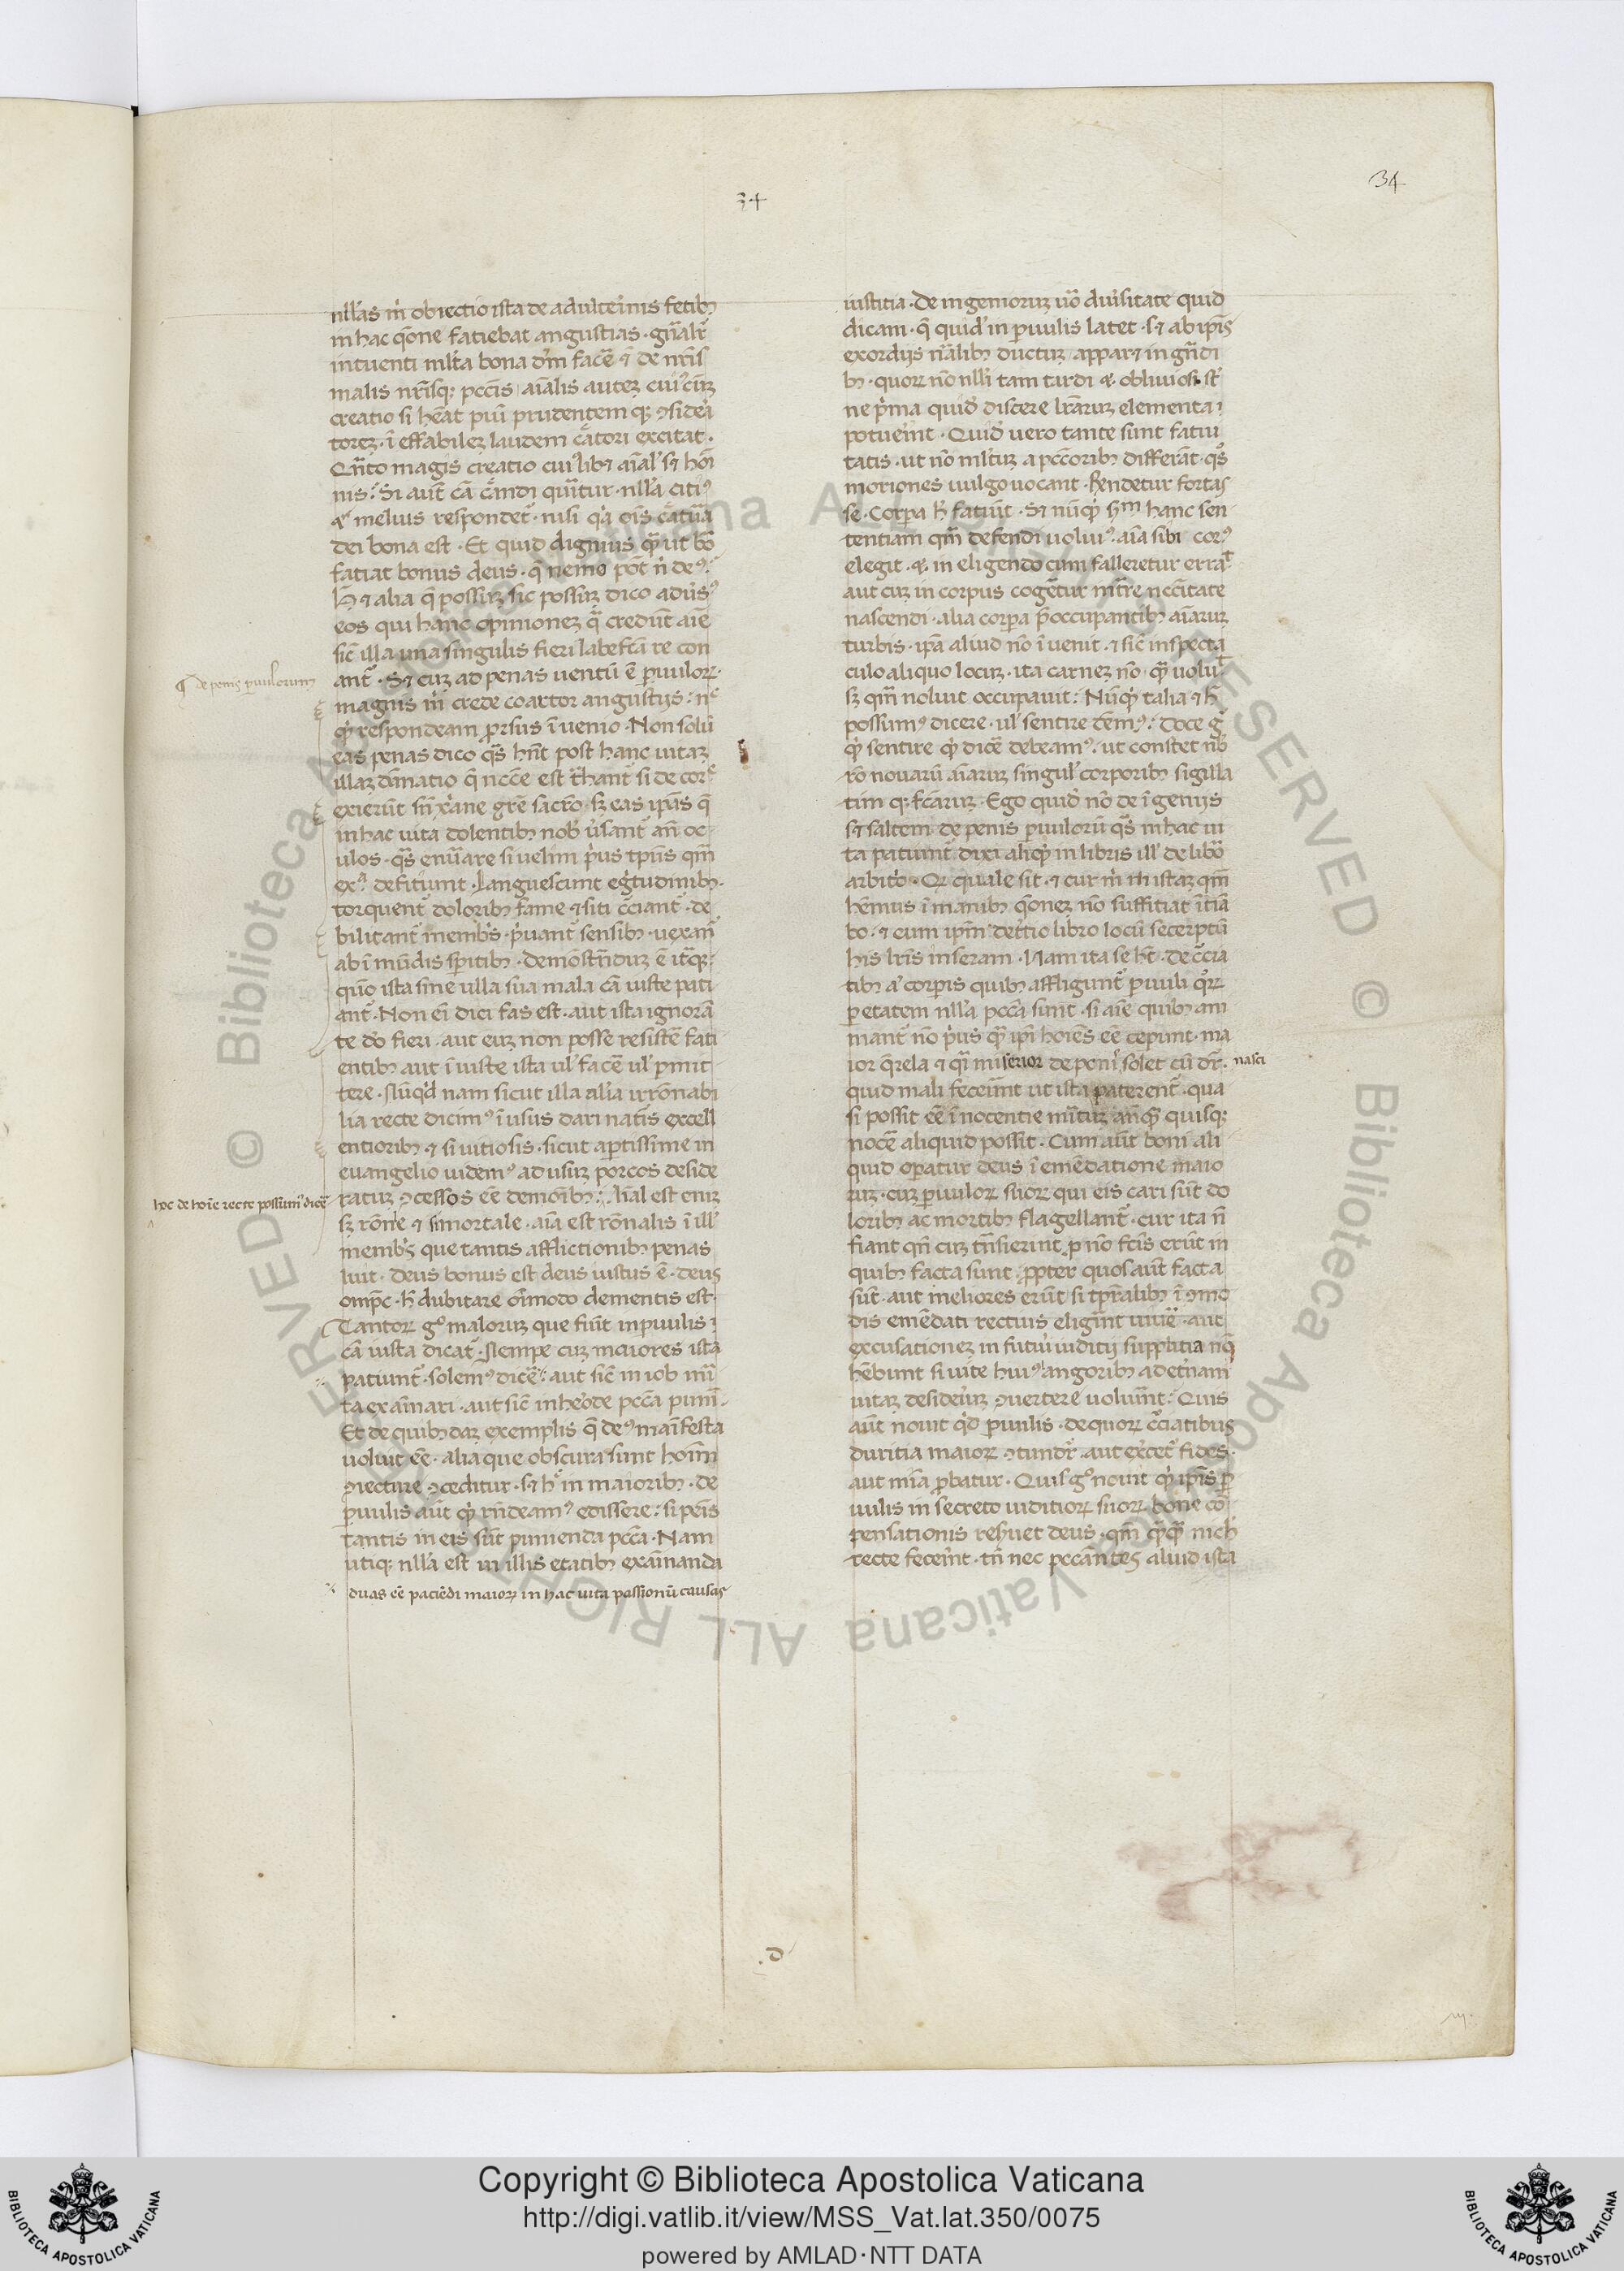 34
34
nll'as m̉ obiectio ista de adulterinis fetibꝫ
in hac q̄one fatiebat angustias · gn̄alr̉
intuenti ml'ta bona dm̄ facē ⁊ de nr̄is
malis nr̄isqꝫ pcc̄is · aīalis autēꝫ cui'cūqꝫ
creatio si hēat pium prudentemqꝫ ꝯsidera
torēꝫ · ī effabilēꝫ laudem cātori excitat ·
Qn̄to magis creatio cui'libꝫ aīal' sꝫ hoī
nis? Si aūt cā cāndi quīitur · nll'a citiꝰ
⁊ melius respondet̉ · nisi qꝛ oīs cātura
dei bona est · Et quid dignius qꝫ ut bōa
fatiat bonus deus · q̄ nemo pōt n̄ deꝰ?
Hꝫ ⁊ alia q̄ possūꝫ sic possūꝫ dico adūsꝰ
eos qui hanc opinionēꝫ q̄ credūt aīe
sic̄ illa una singulis fieri labefc̄are con
ant̉ · Sꝫ cūꝫ ad penas uentū ē ꝑuulorꝝ ·
¶ de penis ꝑuulorum
magnis m̉ crede coartor angustijs · nᶜ
qͥd respondeam ꝓrsus ī uenio · Non solū
eas penas dico qͣs hn̄t post hanc uitaꝫ
illaꝫ dānatio q̄ necc̄e est trhant̉ si de corꝑe
exierūt sn̄ xp̄iane grē sacrō · sꝫ eas ipās q̄
in hac uita dolentibꝫ nob' ūsant̉ añ oc
ulos · qͣs enūare si uelim pͥus tp̄us qm̄
exͣ defitiunt · Languescunt egͥtudinibꝫ ·
torquent̉ doloribꝫ fame ⁊ siti cc̄iant̉ · de
bilitant̉ membrͥs · pͥuant̉ sensibꝫ · uexan̉
ab ī mūdis spiritibꝫ · demōstrāduꝫ ē itaqꝫ
quō ista sine ulla sua mala cā iuste pati
ant̉ · Non eī dici fas est · aut ista ignorā
te dō fieri · aut eūꝫ non posse resistē fati
entibꝫ aut ī iuste ista ul' facē ul' ꝑmit
tere · Nūqͥd nam sicut illa alia irrōnabi
lia recte dicimꝰ ī usus dari natis excell
entioribꝫ ⁊ si uitiosis · sicut aꝑtissime in
euangelio uidemꝰ ad usūꝫ porcos deside
ratūꝫ ꝯcessos eē demonibꝫ · Aīal est enīꝫ
hoc de hoīe recte possumꝰ dicē
sꝫ rōnale ⁊ si mortale · aīa est rōnalis ī ill'
membrͥs que tantis afflictionibꝫ penas
luit · Deus bonus est deus iustus ē · deus
omp̄c · h̄ dubitare oīmodo dementis est ·
Tantorꝝ gͦ malorūꝫ que fiūt in ꝑuulis
cā iusta dicat̉ · Nempe cūꝫ maiores ista
patiunt̉ · solemꝰ dicē · aut sic̄ in iob m̉i
ta examinari · aut sic̄ in herode pcc̄a puniri
Et de quibꝫdaꝫ exemplis q̄ deꝰ manifesta
uoluit eē · alia que obscura sunt hoīm
ꝯiecture ꝯceditur · sꝫ h' in maioribꝫ · de
ꝑuulis aūt qͥd rn̄deamꝰ edissere · si penis
tantis in eis sūt punienda pcc̄a · Nam
utiqꝫ nll'a est in illis etatibꝫ exaīnanda
duas eē paciēdi maiorꝝ in hac uita passionū causas
iustitia · De ingeniorūꝫ uō diuͥsitate quid
dicam · q̄ quid' in ꝑuulis latet · sꝫ ab ipīs
exordijs nālibꝫ ductūꝫ apparet in gn̄di
bꝫ · quorꝝ nō nlli tam tardi ⁊ obliuiosi st̄
ne pͥma quid' discere lrāruꝫ elementa
potuerint · Quid' uero tante sunt fatui
tatis · ut nō ml'tūꝫ a pccoribꝫ differāt · qͣs
moriones uulgo uocant · Rn̄detur fortas
se · Corpora h' fatiūt · Sꝫ nūqͥd scd̄m hanc sen
tentiam qm̄ defendi uolumꝰ · aīa sibi corpꝰ
elegit · ⁊ in eligendo cum falleretur errauit
aut cūꝫ in corpus cogeret̉ intrare necc̄itate
nascendi · alia corpora p̄occupantibꝫ aīaruꝫ
turbis · ipā aliud nō ī uenit · ⁊ sic̄ in specta
culo aliquo locūꝫ · ita carnēꝫ nō qͣꝫ uoluit
sꝫ qm̄ noluit occupauit? Nūqͥd talia ⁊ h̄
possumꝰ dicere · ul' sentire dēmꝰ? Doce gͦ
qͥd sentire qͥd dicē debeamꝰ · ut constet nob'
rō nouarū aīaruꝫ singul' corporibꝫ sigilla
timqꝫ fc̄aruꝫ · Ego quid' nō de ī genijs
sꝫ saltem de penis ꝑuulorū qͣs in hac ui
ta patiunt̉ dixi aliqͥd in libris ill' de libō
arbitrͦ · Qꝫ quale sit · ⁊ cur m̉ in istaꝫ qm̄
hēmus ī manibꝫ q̄onēꝫ nō suffitiat ītia
bo · ⁊ eum ipm̄ de tertio libro locū decerptū
his lrīs inseram · Nam ita se hꝫ · De cc̄ia
tibꝫ aͭ corporis quibꝫ affligunt̉ ꝑuuli qͦrꝝ
ꝑ etatem nll'a pcc̄a sunt · si aīe quibꝫ ani
mant̉ nō pͥus qͣꝫ ipī hoīes eē ceperunt · ma
ior q̄rela ⁊ qͣi misericor deponi solet cū dr̄ ·
nasci
quid mali fecerunt ut ista paterent̉ · qua
si possit eē ī nocentie meritūꝫ añqͣꝫ quisqꝫ
nocē aliquid possit · Cum aūt boni ali
quid operatur deus ī emēdatione maio
ruꝫ · cūꝫ ꝑuulorꝝ suorꝝ qui eis cari sūt do
loribꝫ ac mortibꝫ flagellant̉ · cur ita n̄
fiant qn̄ cūꝫ trāsierint ꝓ nō fc̄is erūt in
quibꝫ facta sunt · ꝓpter quos aūt facta
sūt · aut meliores erūt si tp̄ralibꝫ ī ꝯmo
dis emēdati rectius eligerint uiuē · aut
excusationēꝫ in futuri iuditij supplitia nō
hēbunt si uite huiꝰ angoribꝫ ad et̉nam
uitaꝫ desideriūꝫ ꝯuertere uoluerint · Quis
aūt nouit qͥd ꝑuulis · de quorꝝ cc̄iatibus
duritia maiorꝝ ꝯtundit̉ · aut exercet̉ fides ·
aut mīa ꝓbatur · Quis gͦ nouit qͥd ipīs ꝑ
uulis in secreto iuditiorꝝ suorꝝ bone cō
pensationis reseruet deus · qm̄ qͣꝫqͣꝫ nichil
recte fecerint · tn̄ nec peccantes aliud ista
.d.
Copyright © Biblioteca Apostolica Vaticana
http://digi.vatlib.it/view/MSS_Vat.lat.350/0075
powered by AMLAD·NTT DATA
BIBLIOTECA APOSTOLICA VATICANA
BIBLIOTECA APOSTOLICA VATICANA
© Biblioteca Apostolica Vaticana ALL RIGHTS RESERVED © Biblioteca Apostolica Vaticana ALL RIGHTS RESERVED